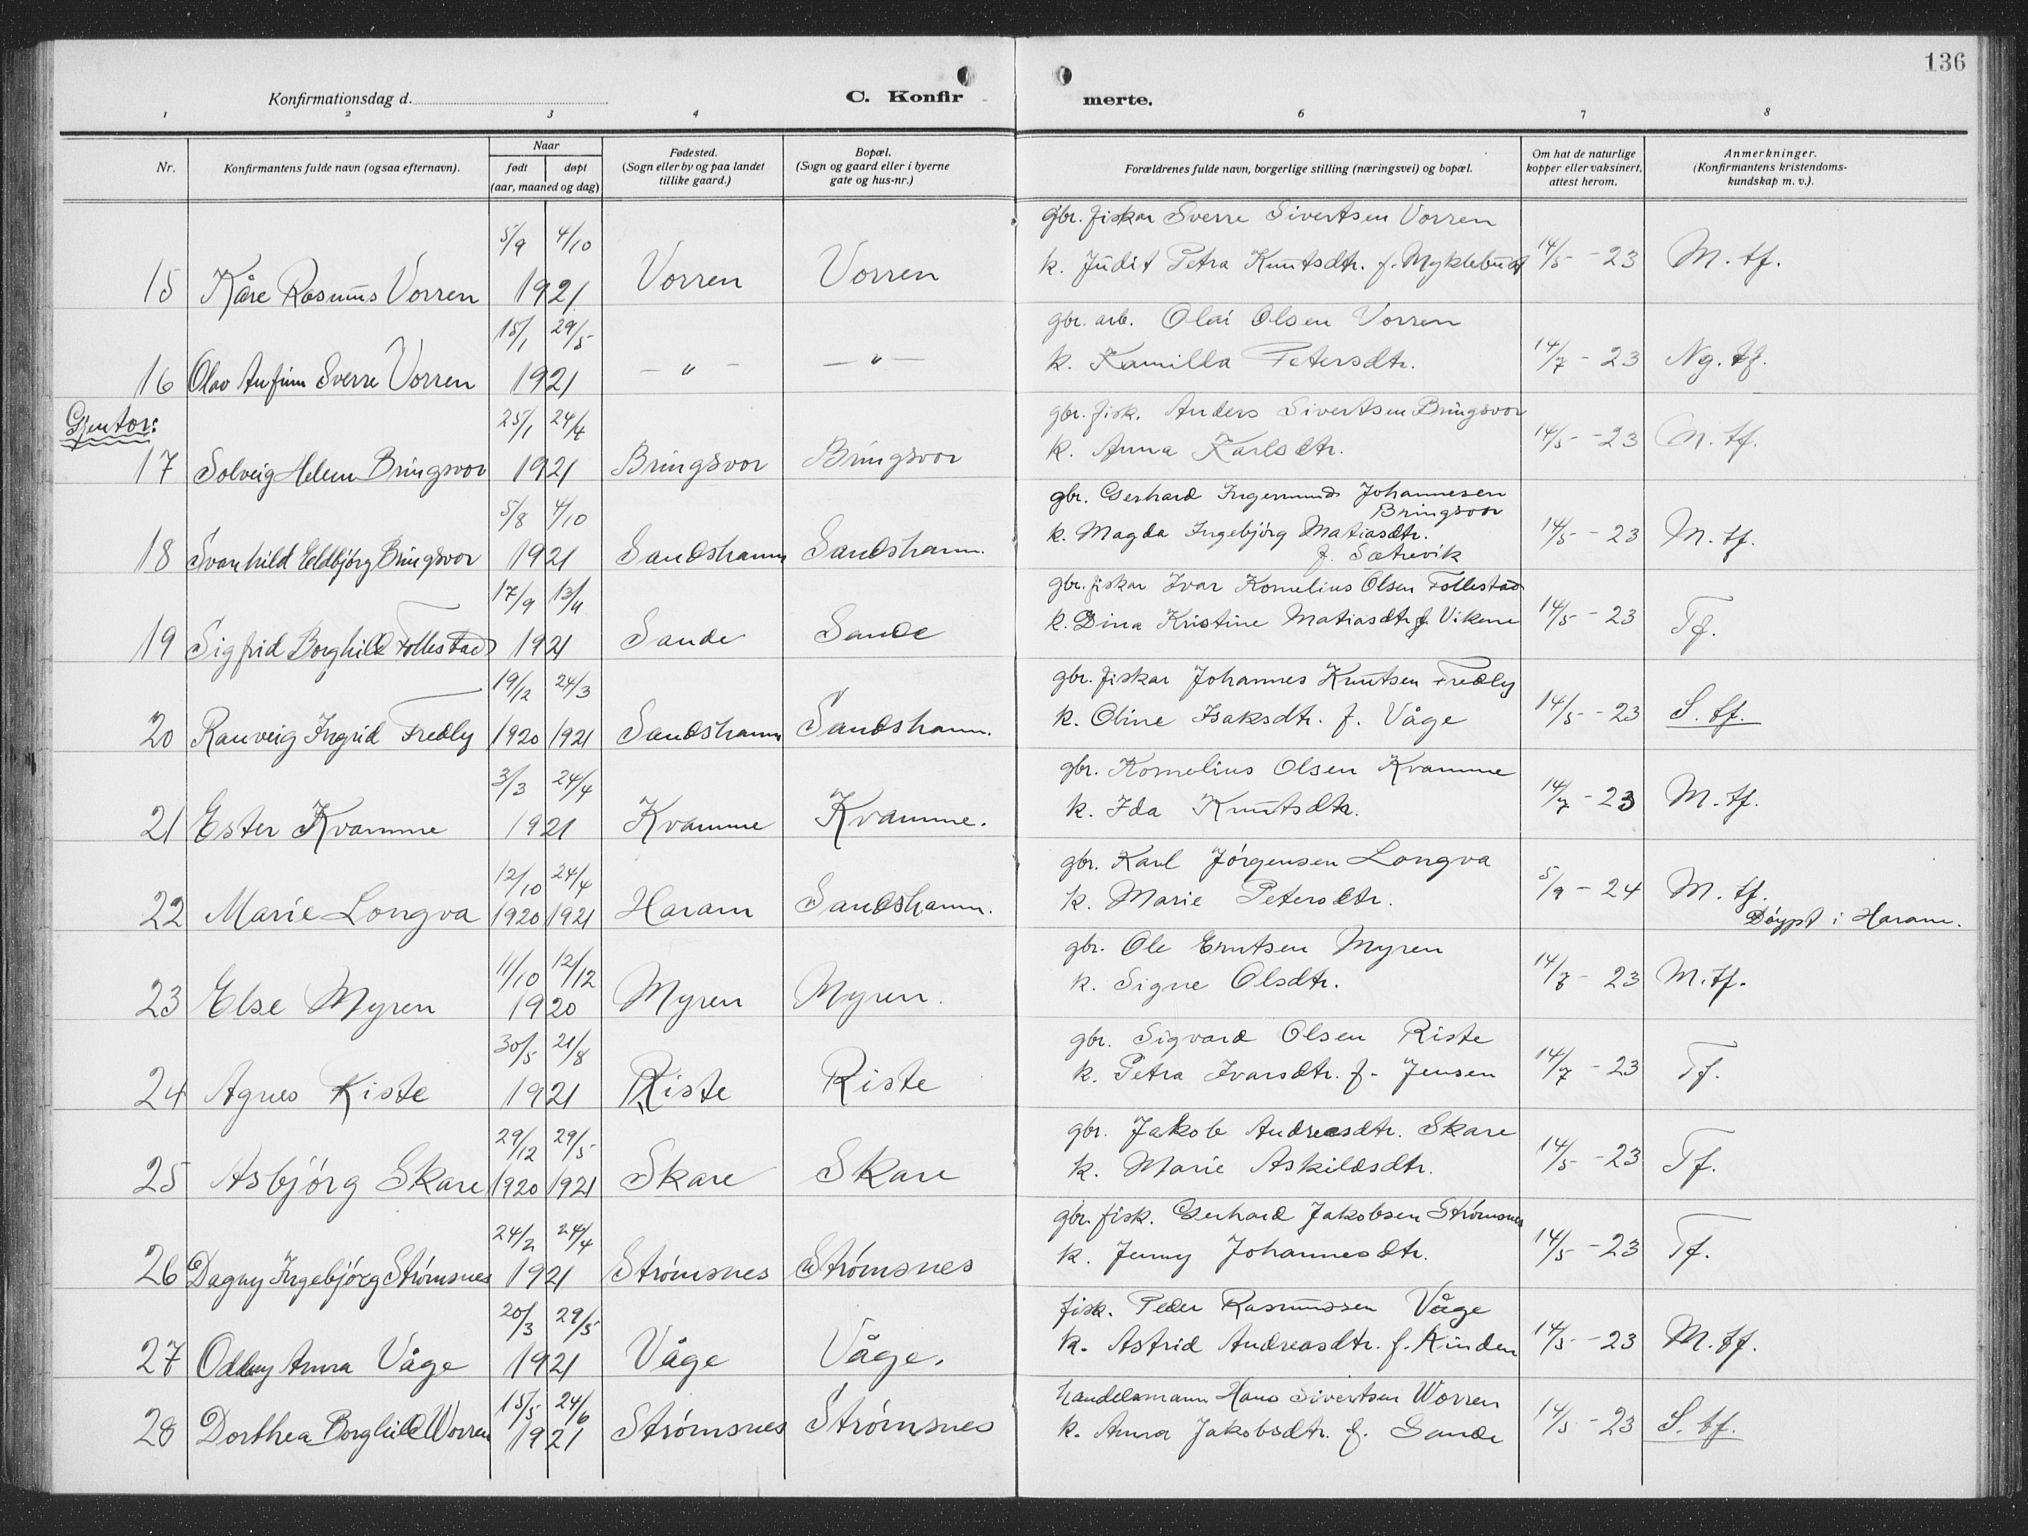 136
Konfirmationsdag d.
C. Konfirmerte.
1 2 3 4 6 7 8
Nr.
Konfirmantens fulde navn (ogsaa efternavn).
Naar
født døpt
(aar, maaned og dag)
Fødested.
(Sogn eller by og paa landet
tillike gaard.)
Bopæl.
(Sogn og gaard eller i byerne
gate og hus-nr.)
Forældrenes fulde navn, borgerlige stilling (næringsvei) og bopæl.
Om hat de naturlige
kopper eller vaksinert,
attest herom.
Anmerkninger.
(Konfirmantens kristendoms-
kundskap m. v.).
5/9 4/10 gbr. fiskar Sverre Sivertsen Vorren
15 Kåre Rasmus Vorren 1921 Vorren Vorren k. Judit Petra Knutsdtr. f. Myklebust 14/5 - 23 M. tf.
15/1 29/5 gbr. arb. Olai Olsen Vorren
16 Olav Anfinn Sverre Vorren 1921 — " — — " — k. Kamilla Petersdtr. 14/7 - 23 Ng. tf.
Gjentor:
25/1 24/4 gbr. fisk. Anders Sivertsen Bringsvor
17 Solveig Helene Bringsvor 1921 Bringsvor Bringsvor k. Anna Karlsdtr. 14/5 - 23 M. tf.
5/8 4/10 gbr. Gerhard Ingemund Johannesen
Bringsvor
18 Svanhild Eldbjørg Bringsvor 1921 Sandshamn Sandshamn. k. Magda Ingebjørg Matiasdtr. 14/5 - 23 M. tf.
f. Sætrevik
17/9 13/11 gbr. fiskar Ivar Kornelius Olsen Follestad
19 Sigfrid Borghild Follestad 1921 Sande Sande k. Dina Kristine Matiasdtr f. Vikene 14/5 - 23 Tf.
19/12 24/3 gbr. fiskar Johannes Knutsen Fredly
20 Ranveig Ingrid Fredly 1920 1921 Sandshamn Sandshamn. k. Oline Isaksdtr. f. Våge 14/5 - 23 S. tf.
3/3 24/4 gbr. Kornelius Olsen Kvamme
21 Ester Kvamme 1921 Kvamme Kvamme. k. Ida Knutsdtr. 14/7 - 23 M. tf.
12/10 24/4 gbr. Karl Jørgensen Longva
22 Marie Longva 1920 1921 Haram Sandshamn. k. Marie Petersdtr. 5/9 - 24 M. tf.
Døypt i Haram.
11/10 12/12 gbr. Ole Erntsen Myren
23 Else Myren 1920 Myren Myren. k. Signe Olsdtr. 14/7 - 23 M. tf.
30/5 21/8 gbr. Sigvard Olsen Riste
24 Agnes Riste 1921 Riste Riste k. Petra Ivarsdtr. f. Jensen 14/7 - 23 Tf.
29/12 29/5 gbr. Jakob Andreasdtr. Skare
25 Asbjørg Skare 1920 1921 Skare Skare k. Marie Askildsdtr. 14/5 - 23 Tf.
24/2 24/4 gbr. fisk. Gerhard Jakobsen Strømsnes
26 Dagny Ingebjørg Strømsnes 1921 Strømsnes Strømsnes k. Jenny Johannesdtr. 14/5 - 23 Tf.
20/3 29/5 fisk. Peder Rasmussen Våge
27 Oddny Anna Våge 1921 Våge Våge. k. Astrid Andreasdtr. f. Kinden 14/5 - 23 M. tf.
15/5 24/6 handelsmann Hans Sivertsen Worren
28 Dorthea Borghild Worren 1921 Strømsnes Strømsnes k. Anna Jakobsdtr. f. Sande 14/5 - 23 S. tf.